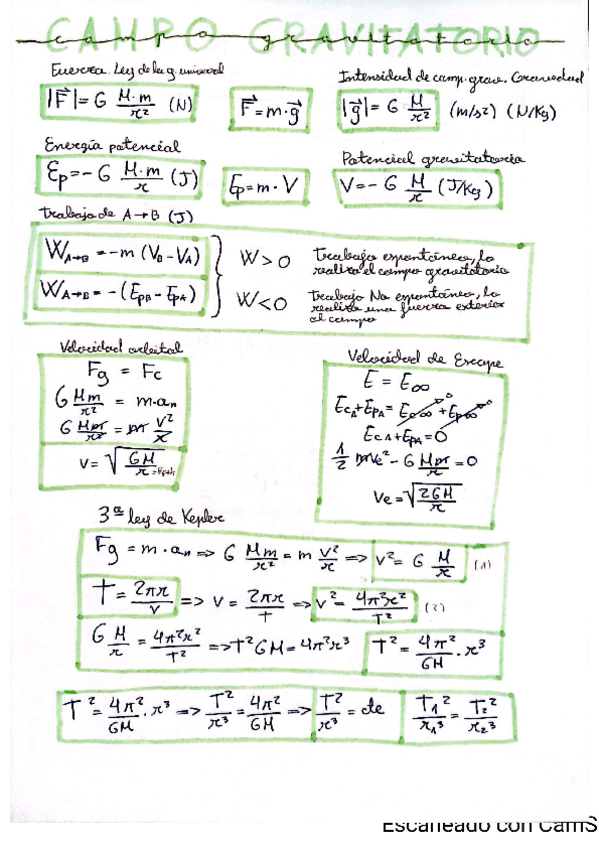 CAMPO GRAVITATORIO
campo gravitatorio
Fuerza. Ley de la g. universal
Intensidad de camp. grav. Gravedad
|F⃗| = G M·m/r² (N)
F⃗ = m·g⃗
|g⃗| = G M/r² (m/s²) (N/Kg)
Energía potencial
Potencial gravitatorio
Ep = - G M·m/r (J)
Ep = m·V
V = - G M/r (J/Kg)
trabajo de A→B (J)
W A→B = -m (VB - VA)
W A→B = -(EpB - EpA)
W > 0 Trabajo espontáneo, lo
realiza el campo gravitatorio
W < 0 trabajo No espontáneo, lo
realiza una fuerza exterior
al campo
Velocidad orbital
Fg = Fc
G Mm/r² = m·an
G Mm/r² = m v²/r
v = √(GM/r)
Velocidad de Escape
E = E∞
EcA + EpA = Ec∞ + Ep∞
EcA + EpA = 0
1/2 mve² - G Mm/r = 0
Ve = √(2GM/r)
3ª ley de Kepler
Fg = m·an => G Mm/r² = m v²/r => v² = G M/r (1)
T = 2πr/v => v = 2πr/T => v² = 4π²r²/T² (2)
G M/r = 4π²r²/T² => T²GM = 4π²r³ T² = 4π²/GM · r³
T² = 4π²/GM · r³ => T²/r³ = 4π²/GM => T²/r³ = cte T₁²/r₁³ = T₂²/r₂³